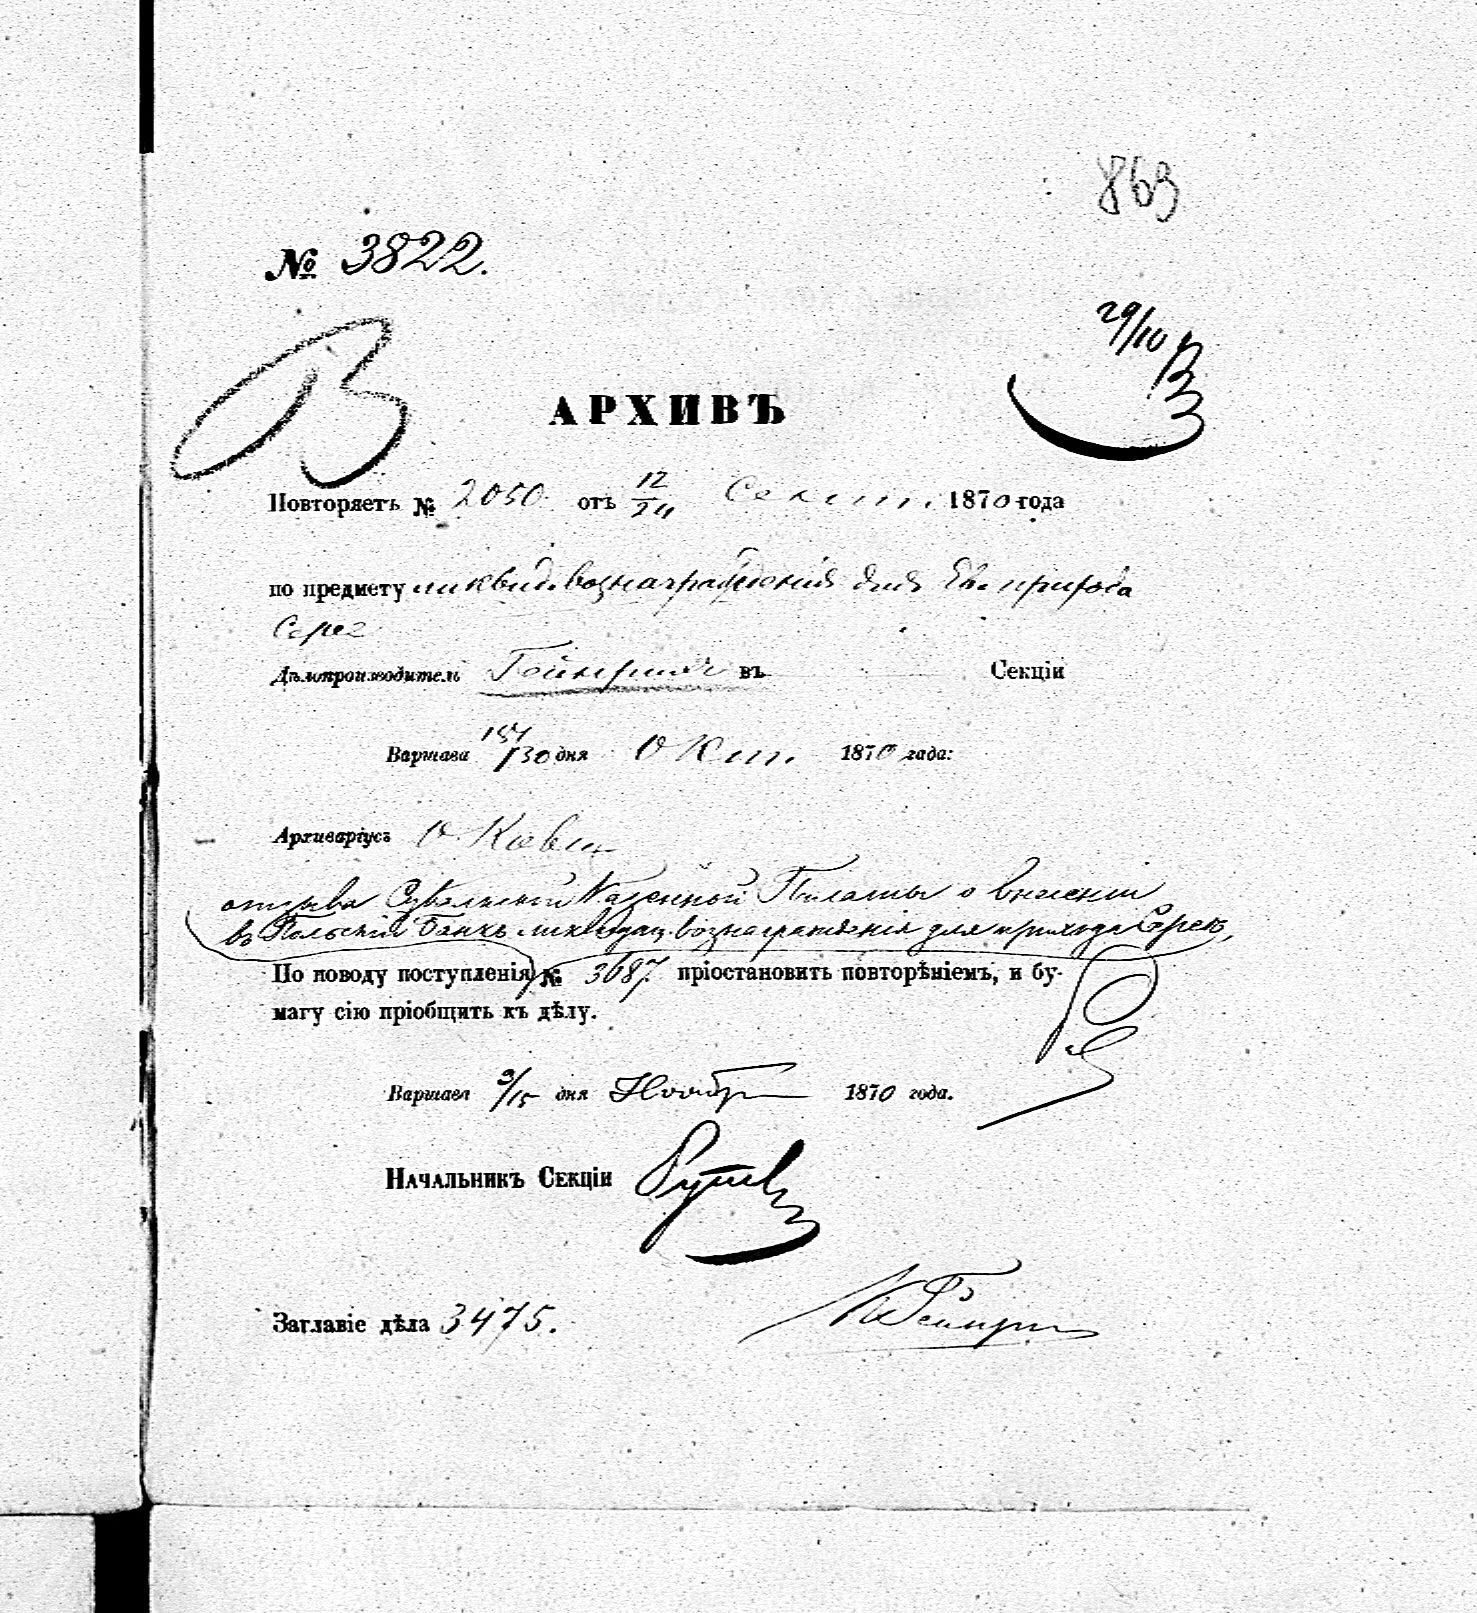 863
№ 3822.
29/10
В
АРХИВЪ
Повторяетъ № 2050 отъ 12/24 Сент. 1870 года
по предмету ликвид. вознагражденія для Ев. прихода
Сереѣ
Дѣлопроизводитель въ Секціи
Варшава /30 дня Окт. 1870 года:
Архиваріусъ
отзыва Сувалкской Казенной Палаты о внесеніи
въ Польскій Банкъ ликвидац. вознагражденія для прихода Сереѣ,
По поводу поступленія № 3687. пріостановить повтореніемъ, и бу-
магу сію пріобщить къ дѣлу.
Варшава 3/15 дня Ноября 1870 года.
Начальникъ Секціи
Заглавіе дѣла 3475.